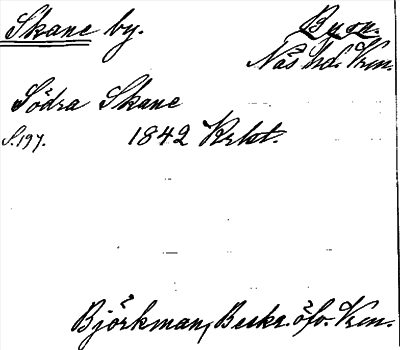 Skane by. By sn.
Näs hd. Vrm.
Södra Skane
S. 197. 1842 Krkt.
Björkman, Beskr. öfv. Vrm.